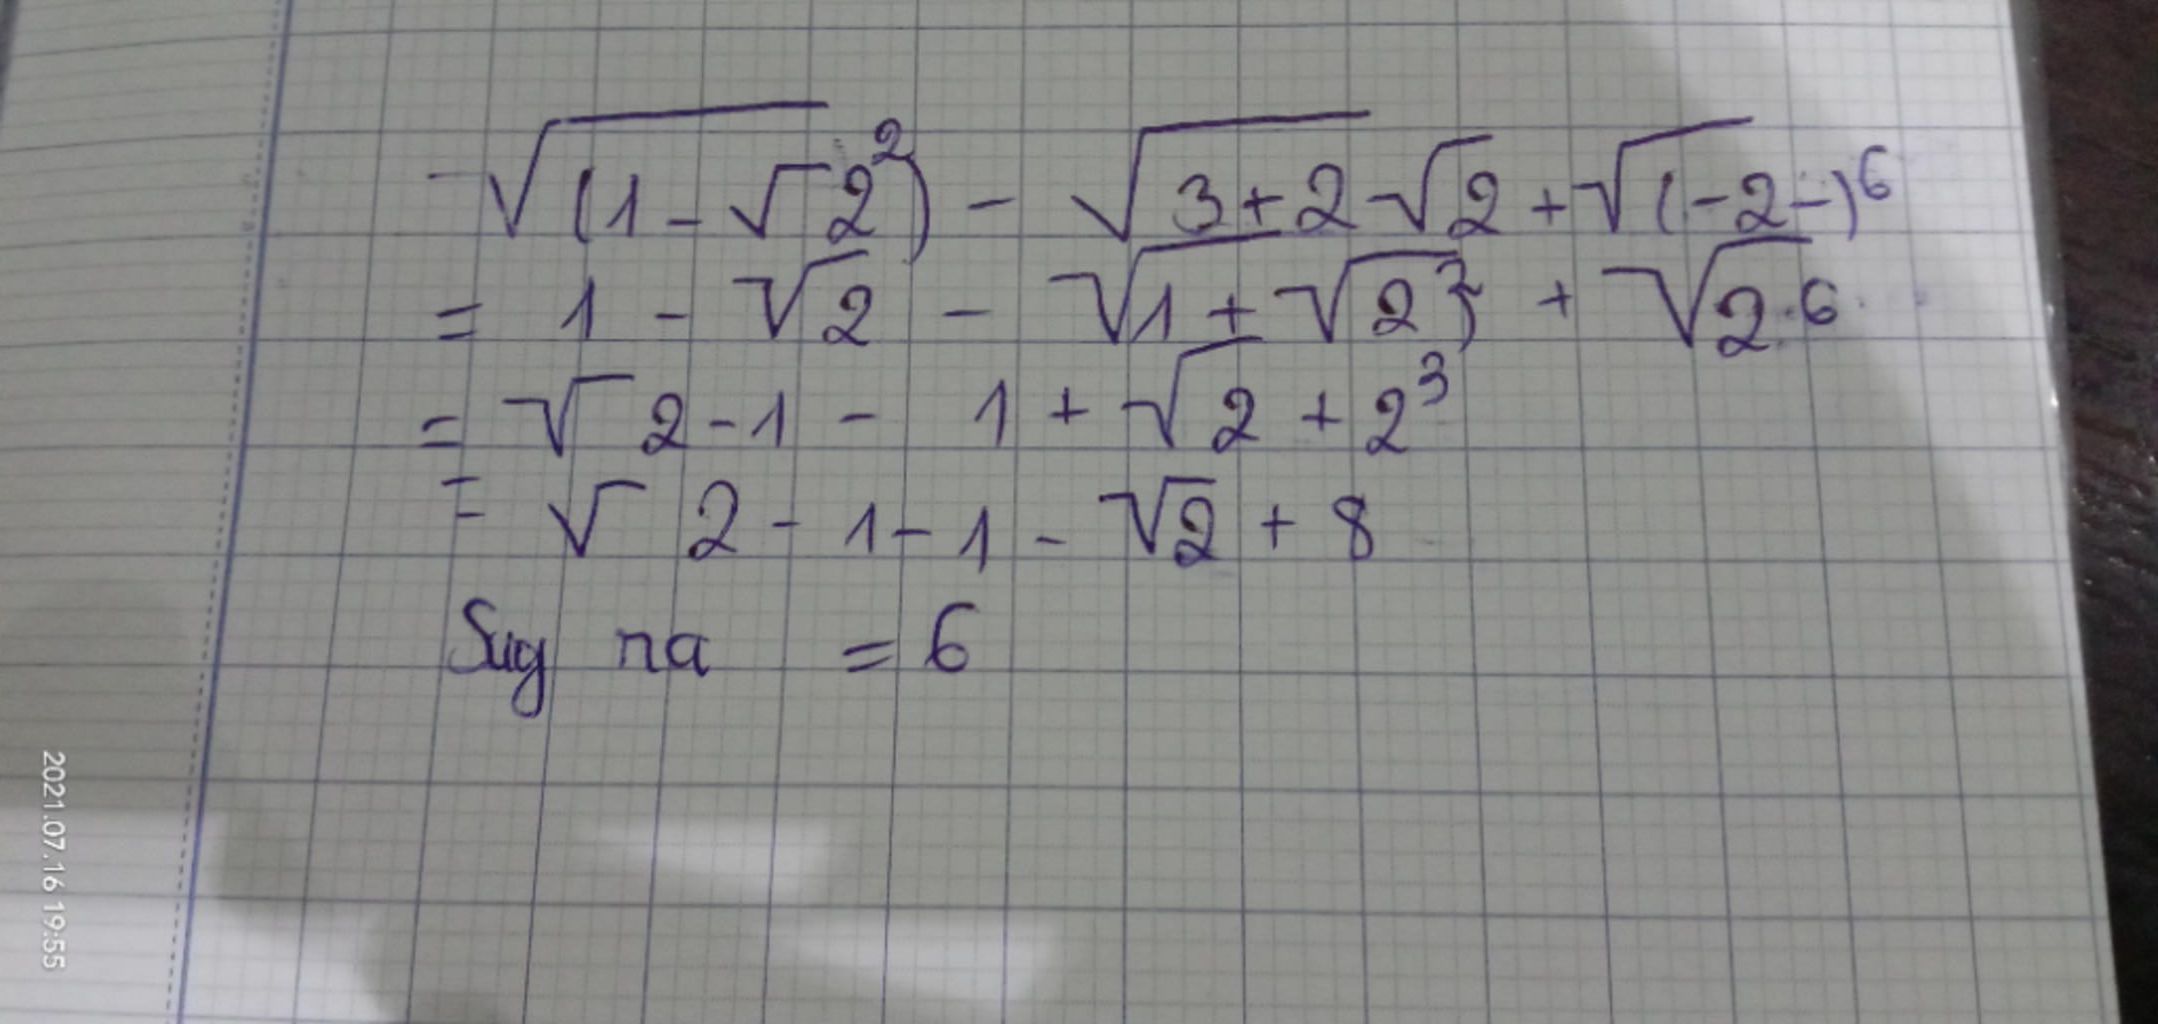 -√(1-√2²) - √3+2√2 + √(-2-)⁶
= 1 - √2 - √1+√2² + √2.6
= √2-1 - 1 + √2 + 2³
= √2 - 1 - 1 - √2 + 8
Suy ra = 6
2021.07.16 19:55